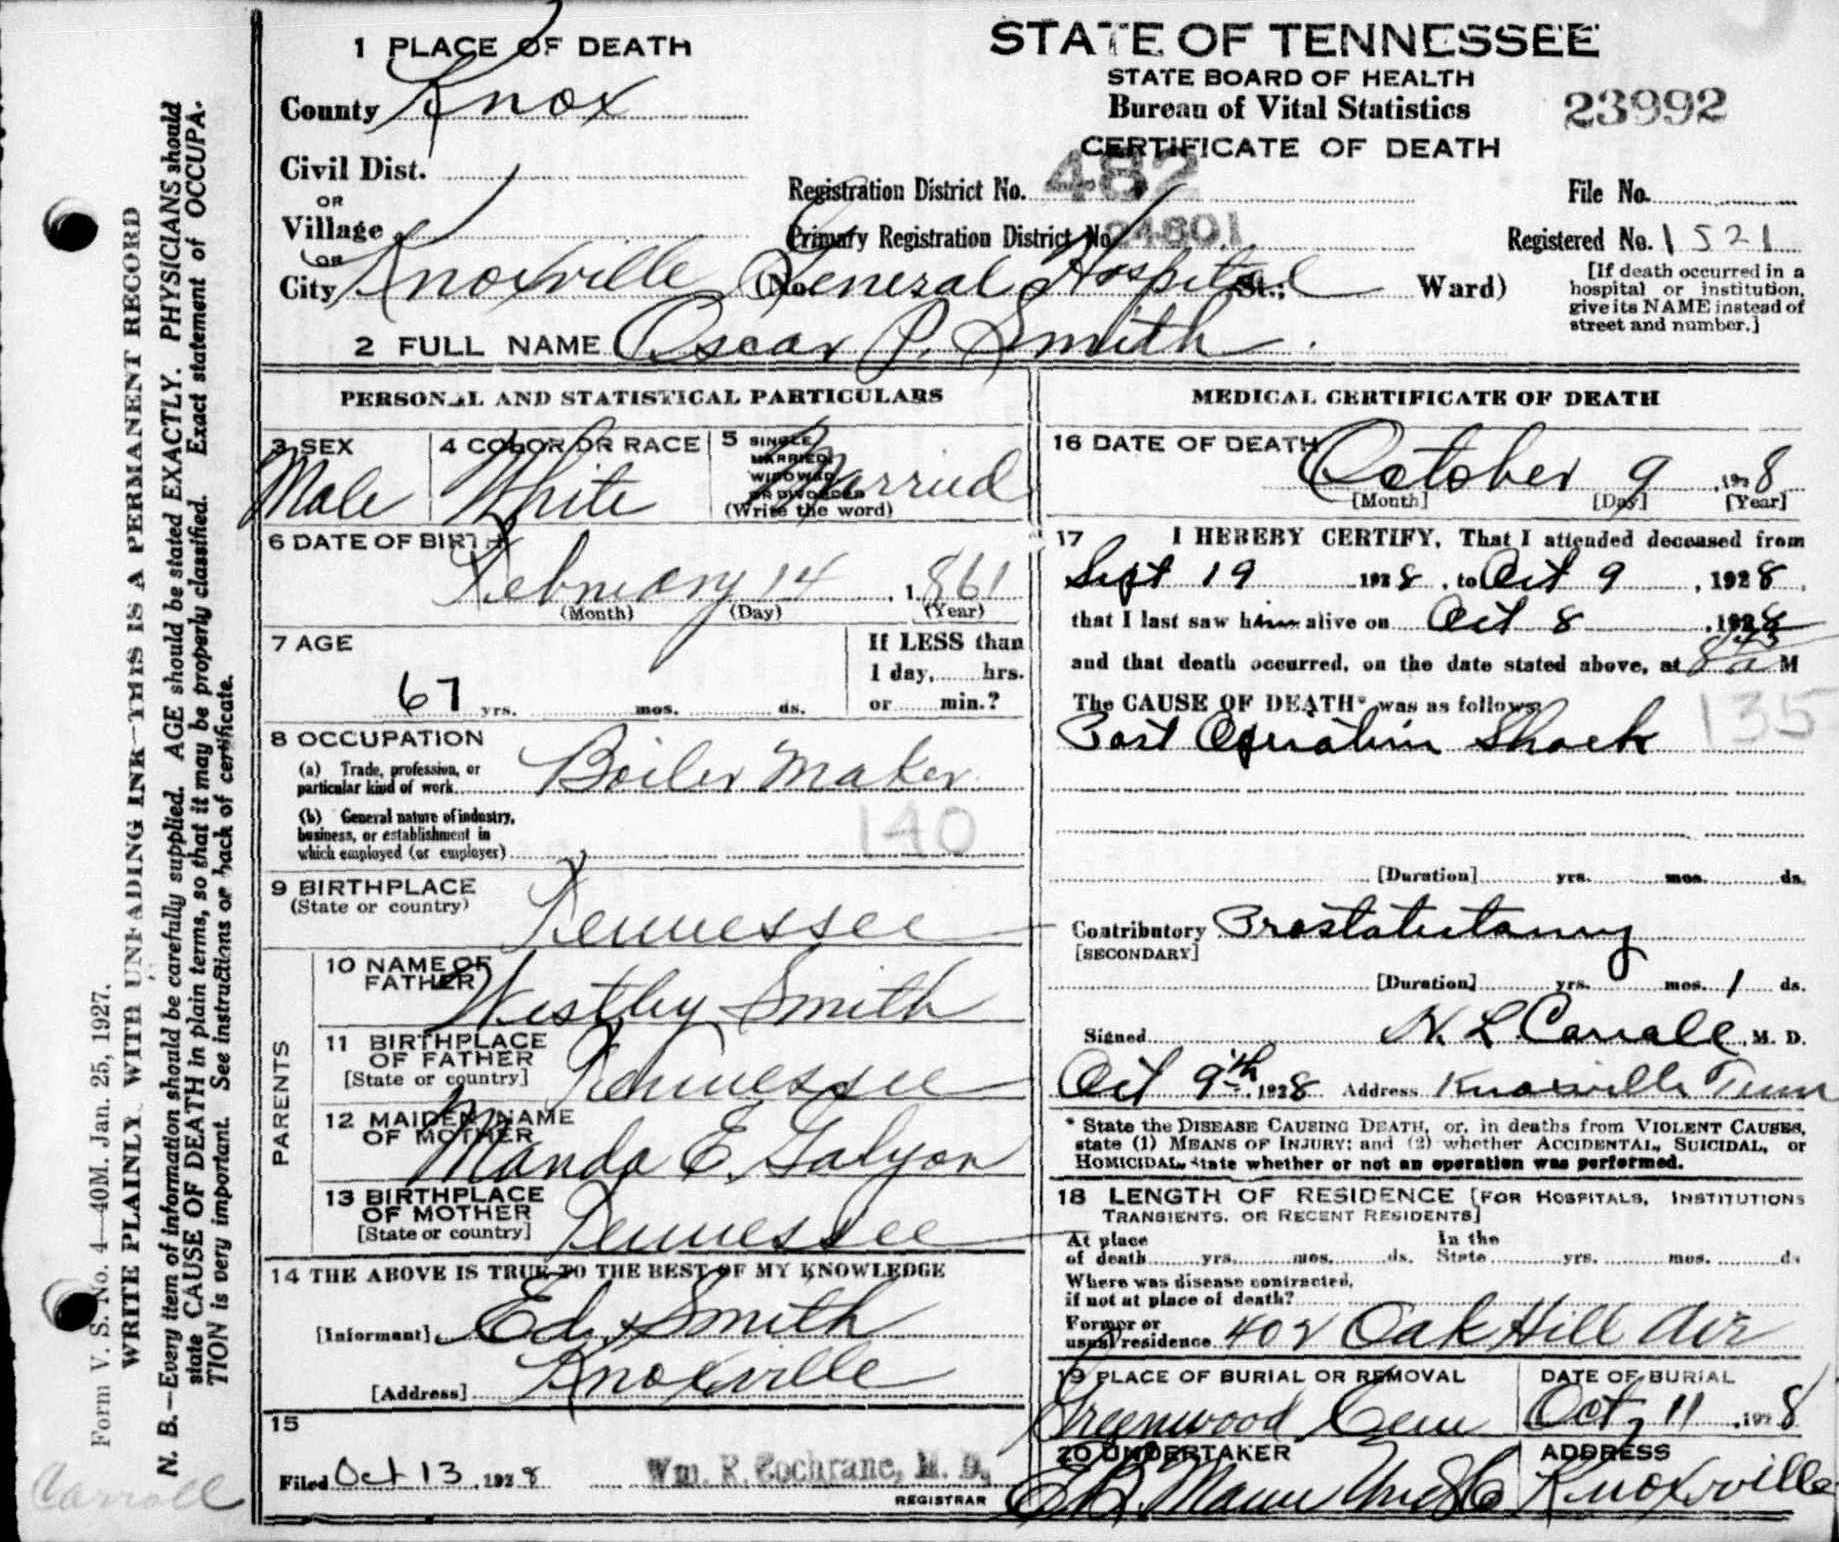 1 PLACE OF DEATH
County Knox
Civil Dist.
OR
Village
OR
City Knoxville (No. General Hospital St.; Ward)
2 FULL NAME Oscar P. Smith
STATE OF TENNESSEE
STATE BOARD OF HEALTH
Bureau of Vital Statistics
CERTIFICATE OF DEATH
23992
Registration District No. 482
File No.
Primary Registration District No. 24801
Registered No. 1521
[If death occurred in a
hospital or institution,
give its NAME instead of
street and number.]
PERSONAL AND STATISTICAL PARTICULARS
3 SEX
Male
4 COLOR OR RACE
White
5 SINGLE
MARRIED
WIDOWED
OR DIVORCED
(Write the word)
Married
6 DATE OF BIRTH
February 14, 1861
(Month) (Day) (Year)
7 AGE
67 yrs. mos. ds.
If LESS than
1 day, hrs.
or min.?
8 OCCUPATION
(a) Trade, profession, or
particular kind of work Boiler Maker
(b) General nature of industry,
business, or establishment in
which employed (or employer)
140
9 BIRTHPLACE
(State or country) Tennessee
PARENTS
10 NAME OF
FATHER Westley Smith
11 BIRTHPLACE
OF FATHER
[State or country] Tennessee
12 MAIDEN NAME
OF MOTHER Manda E. Galyon
13 BIRTHPLACE
OF MOTHER
[State or country] Tennessee
14 THE ABOVE IS TRUE TO THE BEST OF MY KNOWLEDGE
[Informant] Ed. Smith
[Address] Knoxville
15
Filed Oct 13, 1928 Wm. R. Cochrane, M. D.
REGISTRAR
MEDICAL CERTIFICATE OF DEATH
16 DATE OF DEATH
October 9, 1928
[Month] [Day] [Year]
17 I HEREBY CERTIFY, That I attended deceased from
Sept 19 1928, to Oct 9, 1928,
that I last saw him alive on Oct 8, 1928
and that death occurred, on the date stated above, at 8 45 a M
The CAUSE OF DEATH* was as follows:
Post Operation Shock
135
[Duration] yrs. mos. ds.
Contributory Prostatectomy
[SECONDARY]
[Duration] yrs. mos. 1 ds.
Signed N. L Carroll, M. D.
Oct 9th, 1928 Address Knoxville Tenn
* State the DISEASE CAUSING DEATH, or, in deaths from VIOLENT CAUSES,
state (1) MEANS OF INJURY; and (2) whether ACCIDENTAL, SUICIDAL, or
HOMICIDAL, state whether or not an operation was performed.
18 LENGTH OF RESIDENCE [FOR HOSPITALS, INSTITUTIONS
TRANSIENTS, OR RECENT RESIDENTS]
At place In the
of death yrs. mos. ds. State yrs. mos. ds
Where was disease contracted,
if not at place of death?
Former or
usual residence 402 Oak Hill Ave
19 PLACE OF BURIAL OR REMOVAL
Greenwood Cem
DATE OF BURIAL
Oct, 11, 1928
20 UNDERTAKER
E.B. Mann Und Co
ADDRESS
Knoxville
Form V. S. No. 4—40M. Jan. 25, 1927.
WRITE PLAINLY WITH UNFADING INK—THIS IS A PERMANENT RECORD
N. B.—Every item of information should be carefully supplied. AGE should be stated EXACTLY. PHYSICIANS should
state CAUSE OF DEATH in plain terms, so that it may be properly classified. Exact statement of OCCUPA-
TION is very important. See instructions on back of certificate.
Carroll